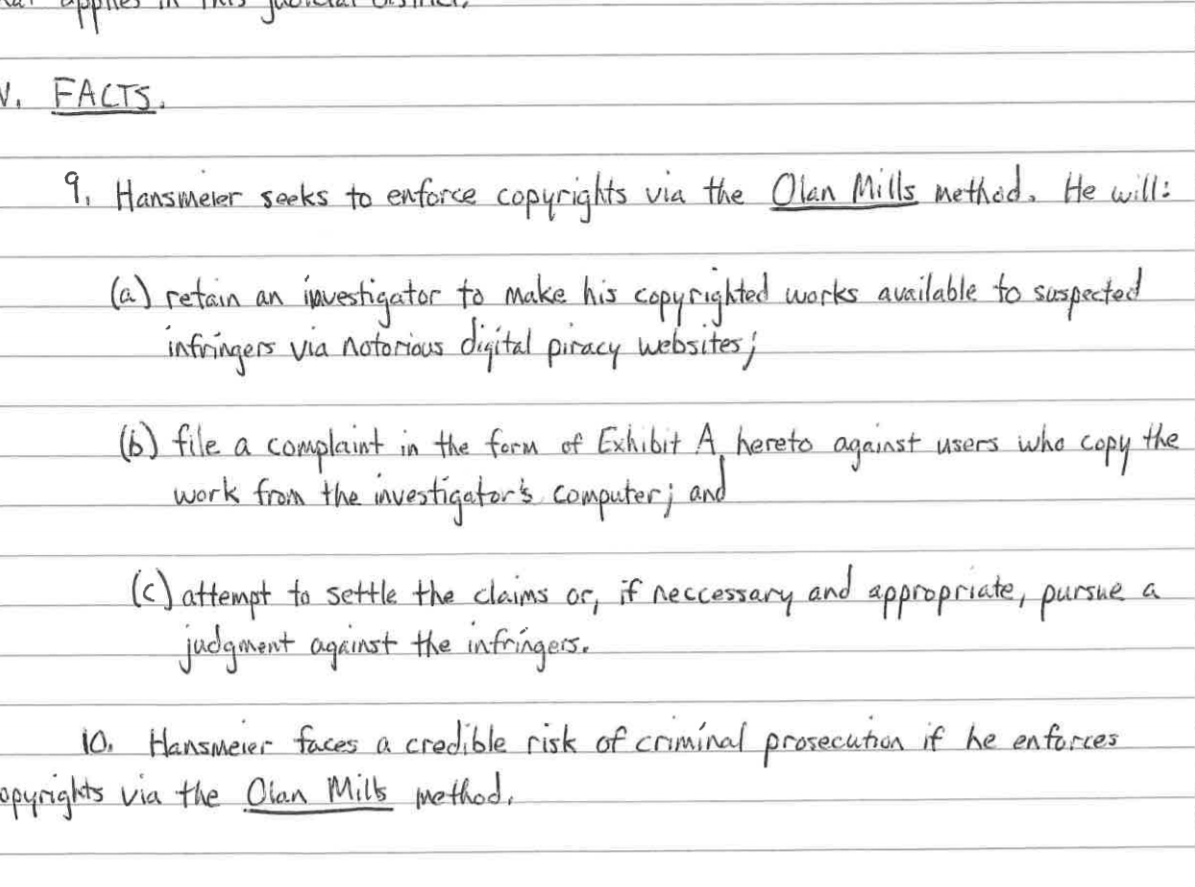 applies in this judicial district.
V. FACTS.
9. Hansmeier seeks to enforce copyrights via the Olan Mills method. He will:
(a) retain an investigator to make his copyrighted works available to suspected
infringers via notorious digital piracy websites;
(b) file a complaint in the form of Exhibit A hereto against users who copy the
work from the investigator's computer; and
(c) attempt to settle the claims or, if neccessary and appropriate, pursue a
judgment against the infringers.
10. Hansmeier faces a credible risk of criminal prosecution if he enforces
opyrights via the Olan Mills method.